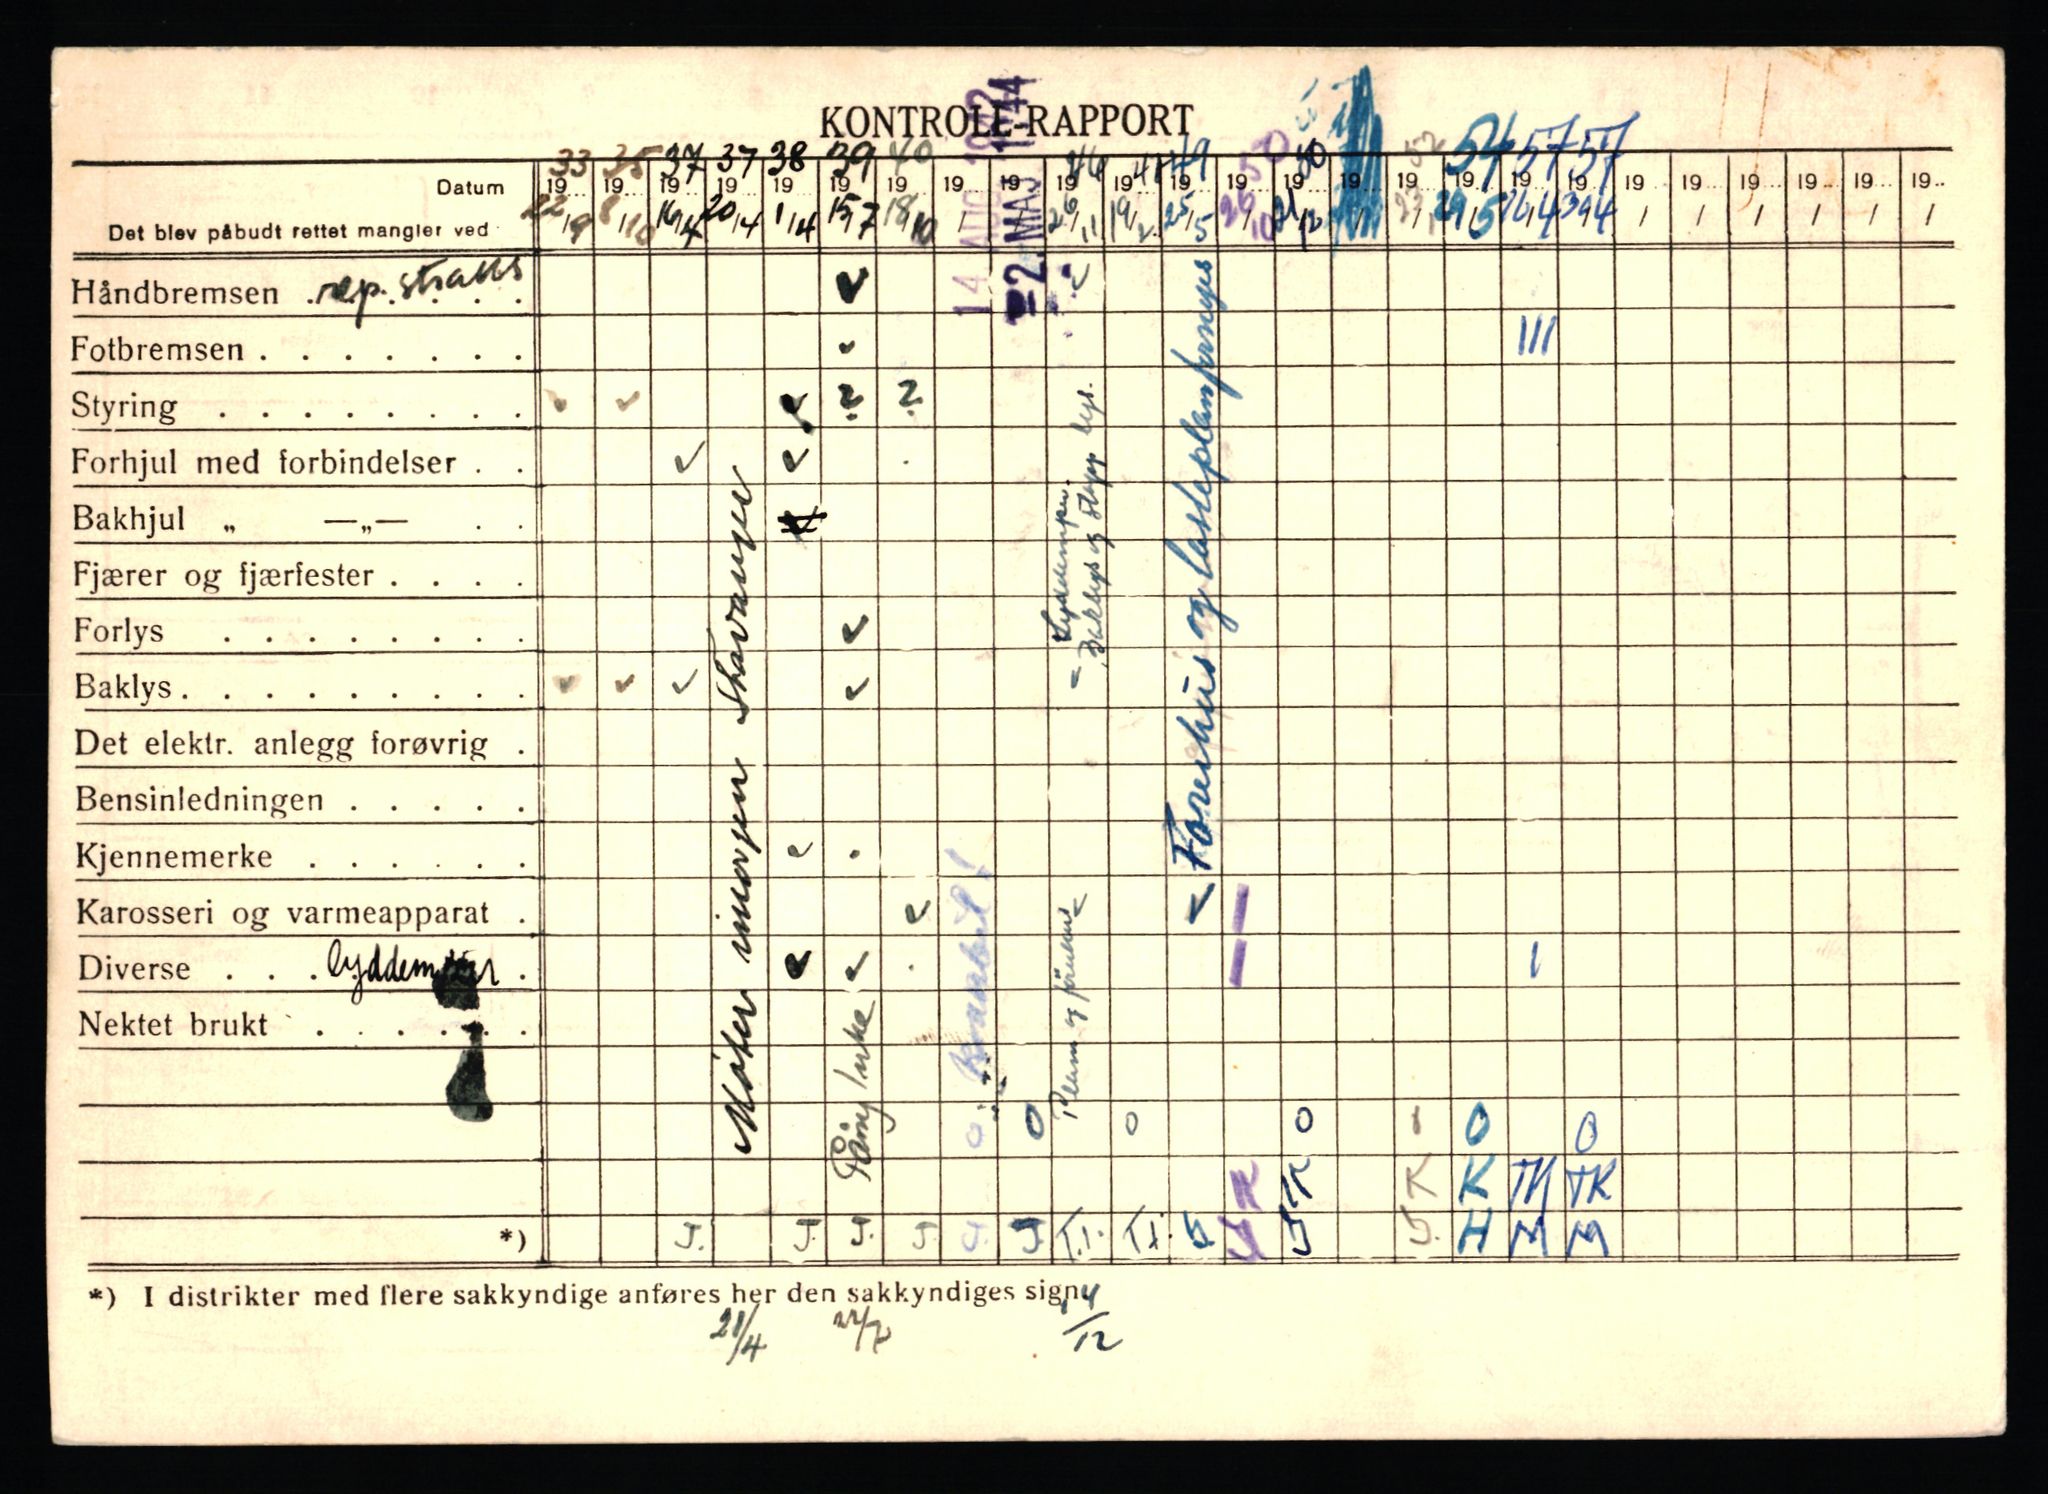 KONTROLL-RAPPORT
33 35 37 37 38 39 40 46 49 50 50 52 54 57 57
Datum 19 19 19 19 19 19 19 19 19 19 19 19 19 19 19 19 19 19 19 19 19 19 19 19 19
Det blev påbudt rettet mangler ved 22/9 8/10 16/4 20/4 1/4 15/7 18/10 14 AUG 1942 -2. MAJ 1944 26/11 19/2 25/5 26/10 29/5 16/4 30/4
Håndbremsen rep. straks
Fotbremsen III
Styring ? ?
Forhjul med forbindelser
Bakhjul „ —„—
Fjærer og fjærfester
Forlys
Baklys
Det elektr. anlegg forøvrig
Bensinledningen
Kjennemerke
Karosseri og varmeapparat
Diverse lyddemper I
Nektet brukt
Møter imorgen Stavanger
Lyddemper.
Baklys og stopp lys.
Forehus og lasteplanfornyes
0 0 0 0 0 0
K K TK TK
*) J. J. J. J. J. J. T.J. T.J. H M M
*) I distrikter med flere sakkyndige anføres her den sakkyndiges sign.
21/4 22/7 14/12